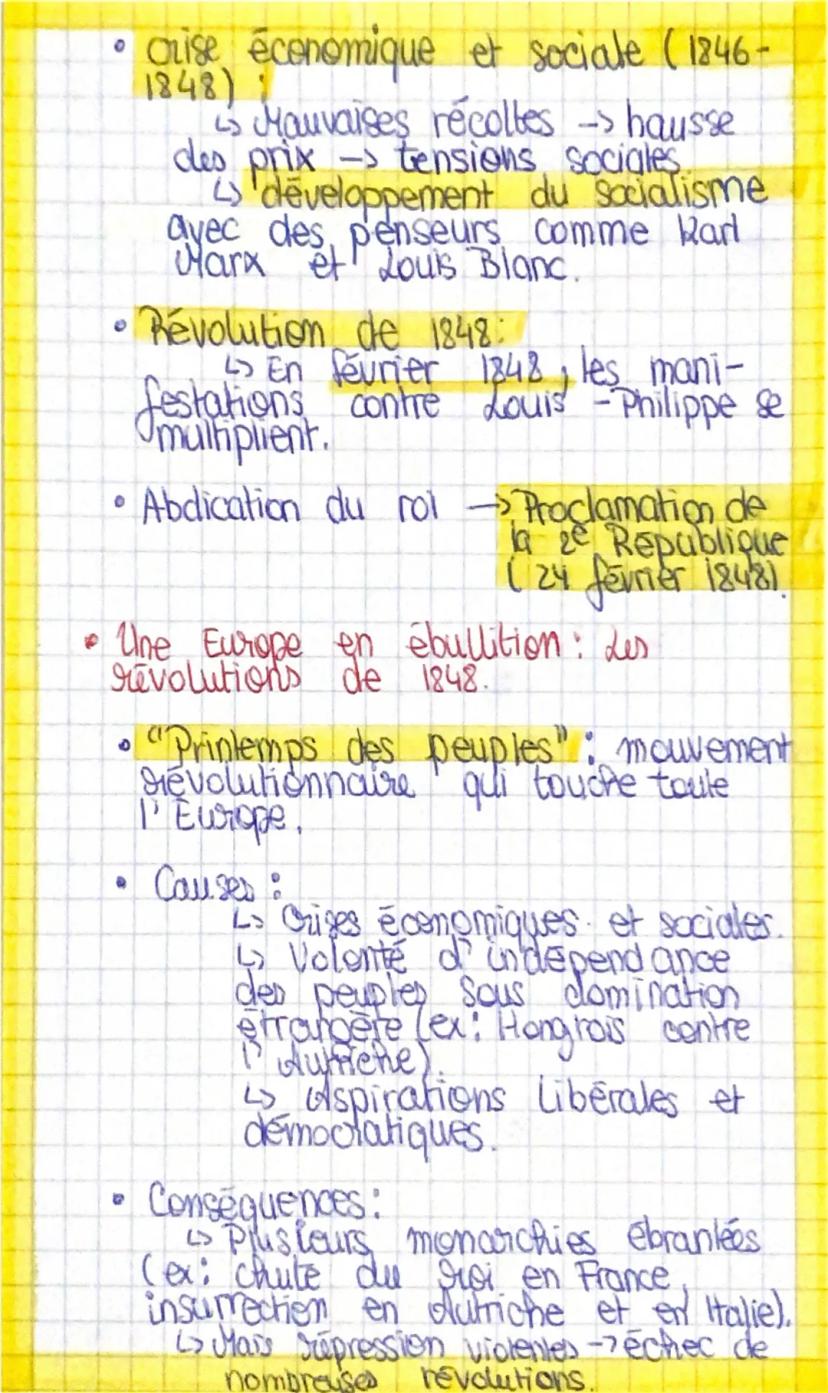 • Crise économique et sociale (1846-
1848) :
↳ Mauvaises récoltes -> hausse
des prix -> tensions sociales
↳ développement du socialisme
avec des penseurs comme Karl
Marx et Louis Blanc.
• Révolution de 1848:
↳ En février 1848, les mani-
festations contre Louis-Philippe se
multiplient.
• Abdication du roi -> Proclamation de
la 2e République
(24 février 1848).
• Une Europe en ébullition : les
révolutions de 1848.
• "Printemps des peuples" : mouvement
révolutionnaire qui touche toute
l'Europe.
• Causes :
↳ Crises économiques et sociales.
↳ Volonté d'indépendance
des peuples sous domination
étrangère (ex: Hongrois contre
l'Autriche).
↳ Aspirations libérales et
démocratiques.
• Conséquences :
↳ Plusieurs monarchies ébranlées
(ex: chute du roi en France,
insurrection en Autriche et en Italie).
↳ Mais répression violentes -> échec de
nombreuses révolutions.